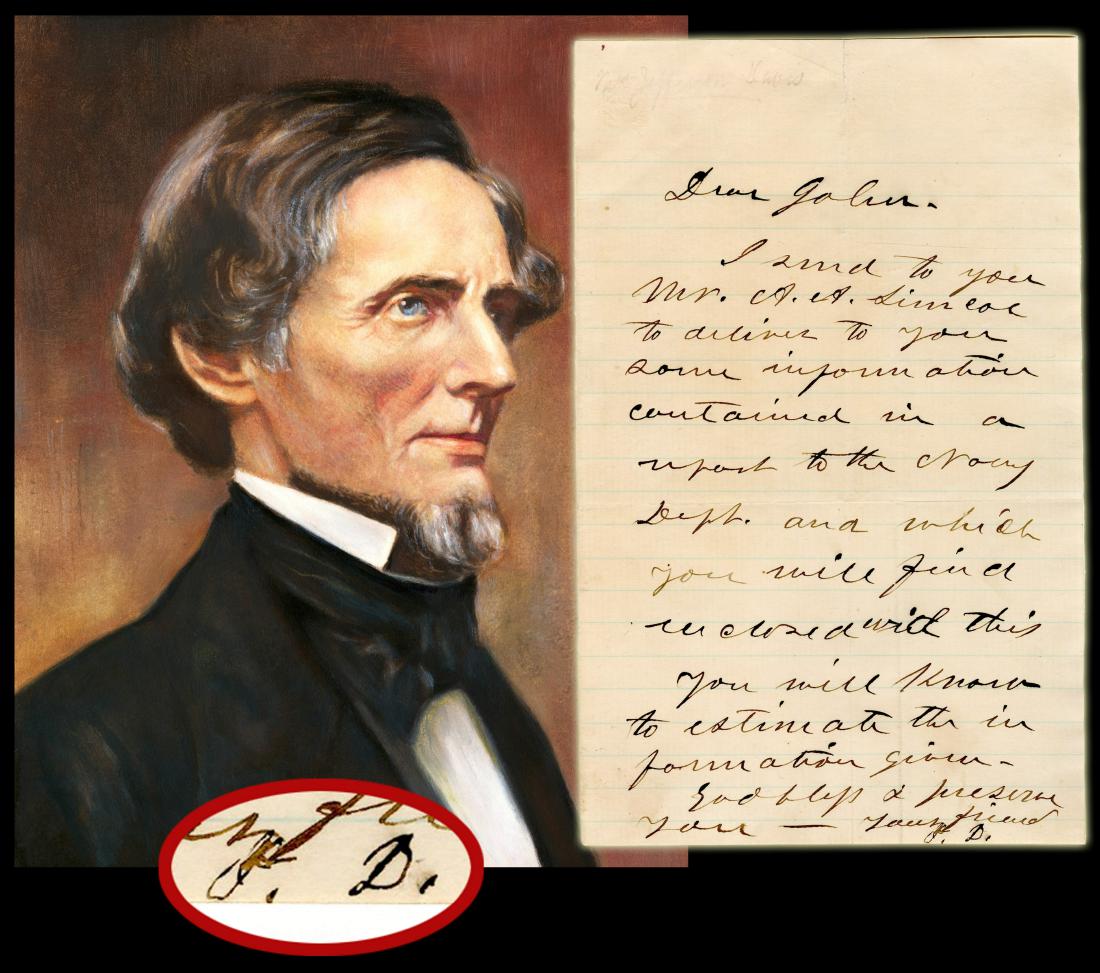 Jefferson Davis
Dear
I send to you
Mr. A. A. Simcoe
to deliver to you
some information
contained in a
report to the Navy
Dept. and which
you will find
inclosed with this
You will know
to estimate the in
formation given -
God bless & preserve
you — Your friend
J. D.
J. D.